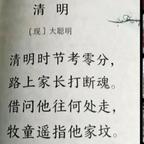 清 明
〔现〕大聪明
清明时节考零分，
路上家长打断魂。
借问他往何处走，
牧童遥指他家坟。